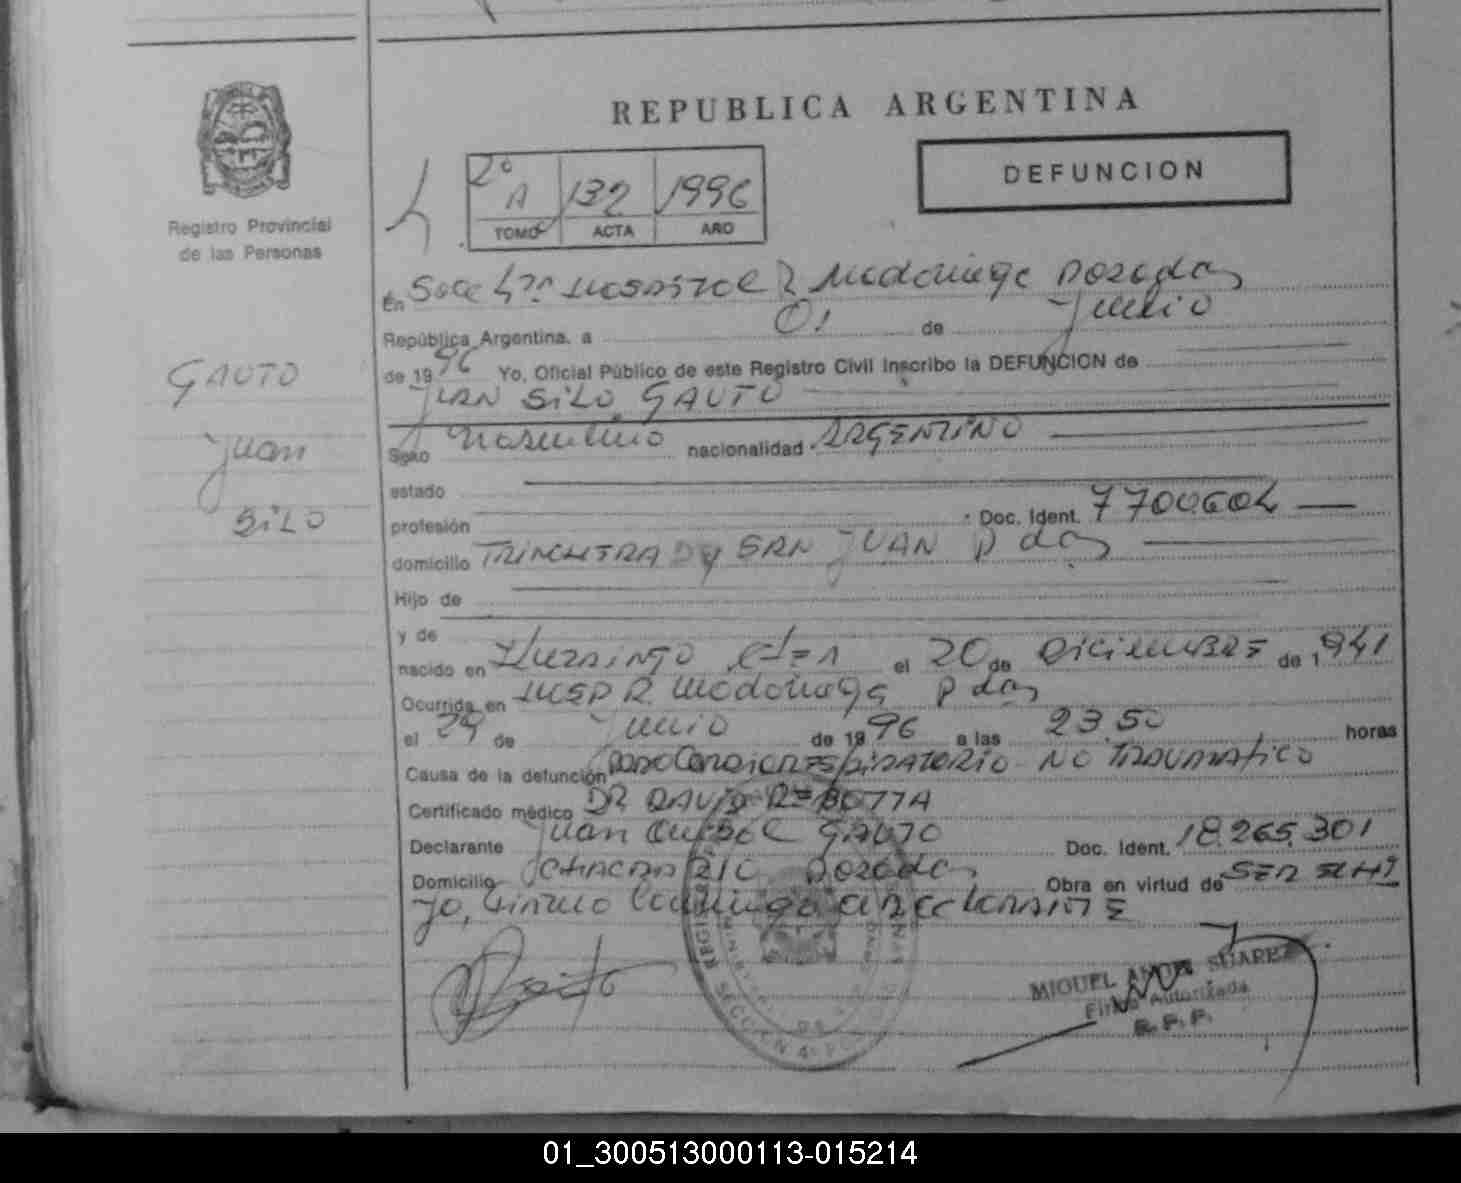 REPUBLICA ARGENTINA
DEFUNCION
2º A 132 1996
TOMO ACTA AÑO
Registro Provincial
de las Personas
GAUTO
Juan
SILO
En Secc 4ta Hospital R Madariaga Posadas
República Argentina, a 01 de Julio
de 1996 Yo, Oficial Público de este Registro Civil Inscribo la DEFUNCION de
JUAN SILO GAUTO
Sexo Masculino nacionalidad ARGENTINO
estado
profesión Doc. Ident. 7700604
domicilio TRINCHERA DE SAN JUAN Pdas
Hijo de
y de
nacido en el 20 de DICIEMBRE de 1941
Ocurrida en HOSP R. Madariaga Pdas
el 29 de Junio de 1996 a las 23.50 horas
Causa de la defunción PARO CARDIORESPIRATORIO NO TRAUMATICO
Certificado médico DR DAVID REBOTTA
Declarante Juan GAUTO Doc. Ident. 18.265.301
Domicilio CHACRA Posadas Obra en virtud de SER SU HIJO
MIGUEL SUAREZ
Firma Autorizada
R. P. P.
SECCION 4ª
01_300513000113-015214